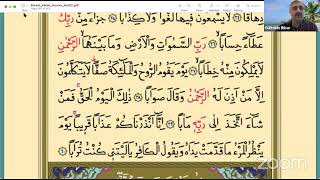 دِهَاقًاۜ ﴿٣٤﴾ لَا يَسْمَعُونَ فِيهَا لَغْوًا وَلَا كِذَّابًاۚ ﴿٣٥﴾ جَزَٓاءً مِنْ رَبِّكَ
عَطَٓاءً حِسَابًاۙ ﴿٣٦﴾ رَبِّ السَّمٰوَاتِ وَالْاَرْضِ وَمَا بَيْنَهُمَا الرَّحْمٰنِ
لَا يَمْلِكُونَ مِنْهُ خِطَابًاۚ ﴿٣٧﴾ يَوْمَ يَقُومُ الرُّوحُ وَالْمَلٰٓئِكَةُ صَفًّاۜ لَا يَتَكَلَّمُونَ
اِلَّا مَنْ اَذِنَ لَهُ الرَّحْمٰنُ وَقَالَ صَوَابًا ﴿٣٨﴾ ذٰلِكَ الْيَوْمُ الْحَقُّۚ فَمَنْ
شَٓاءَ اتَّخَذَ اِلٰى رَبِّهٖ مَاٰبًا ﴿٣٩﴾ اِنَّٓا اَنْذَرْنَاكُمْ عَذَابًا قَرِيبًاۚ يَوْمَ
يَنْظُرُ الْمَرْءُ مَا قَدَّمَتْ يَدَاهُ وَيَقُولُ الْكَافِرُ يَا لَيْتَنٖي كُنْتُ تُرَابًا ﴿٤٠﴾
zoom